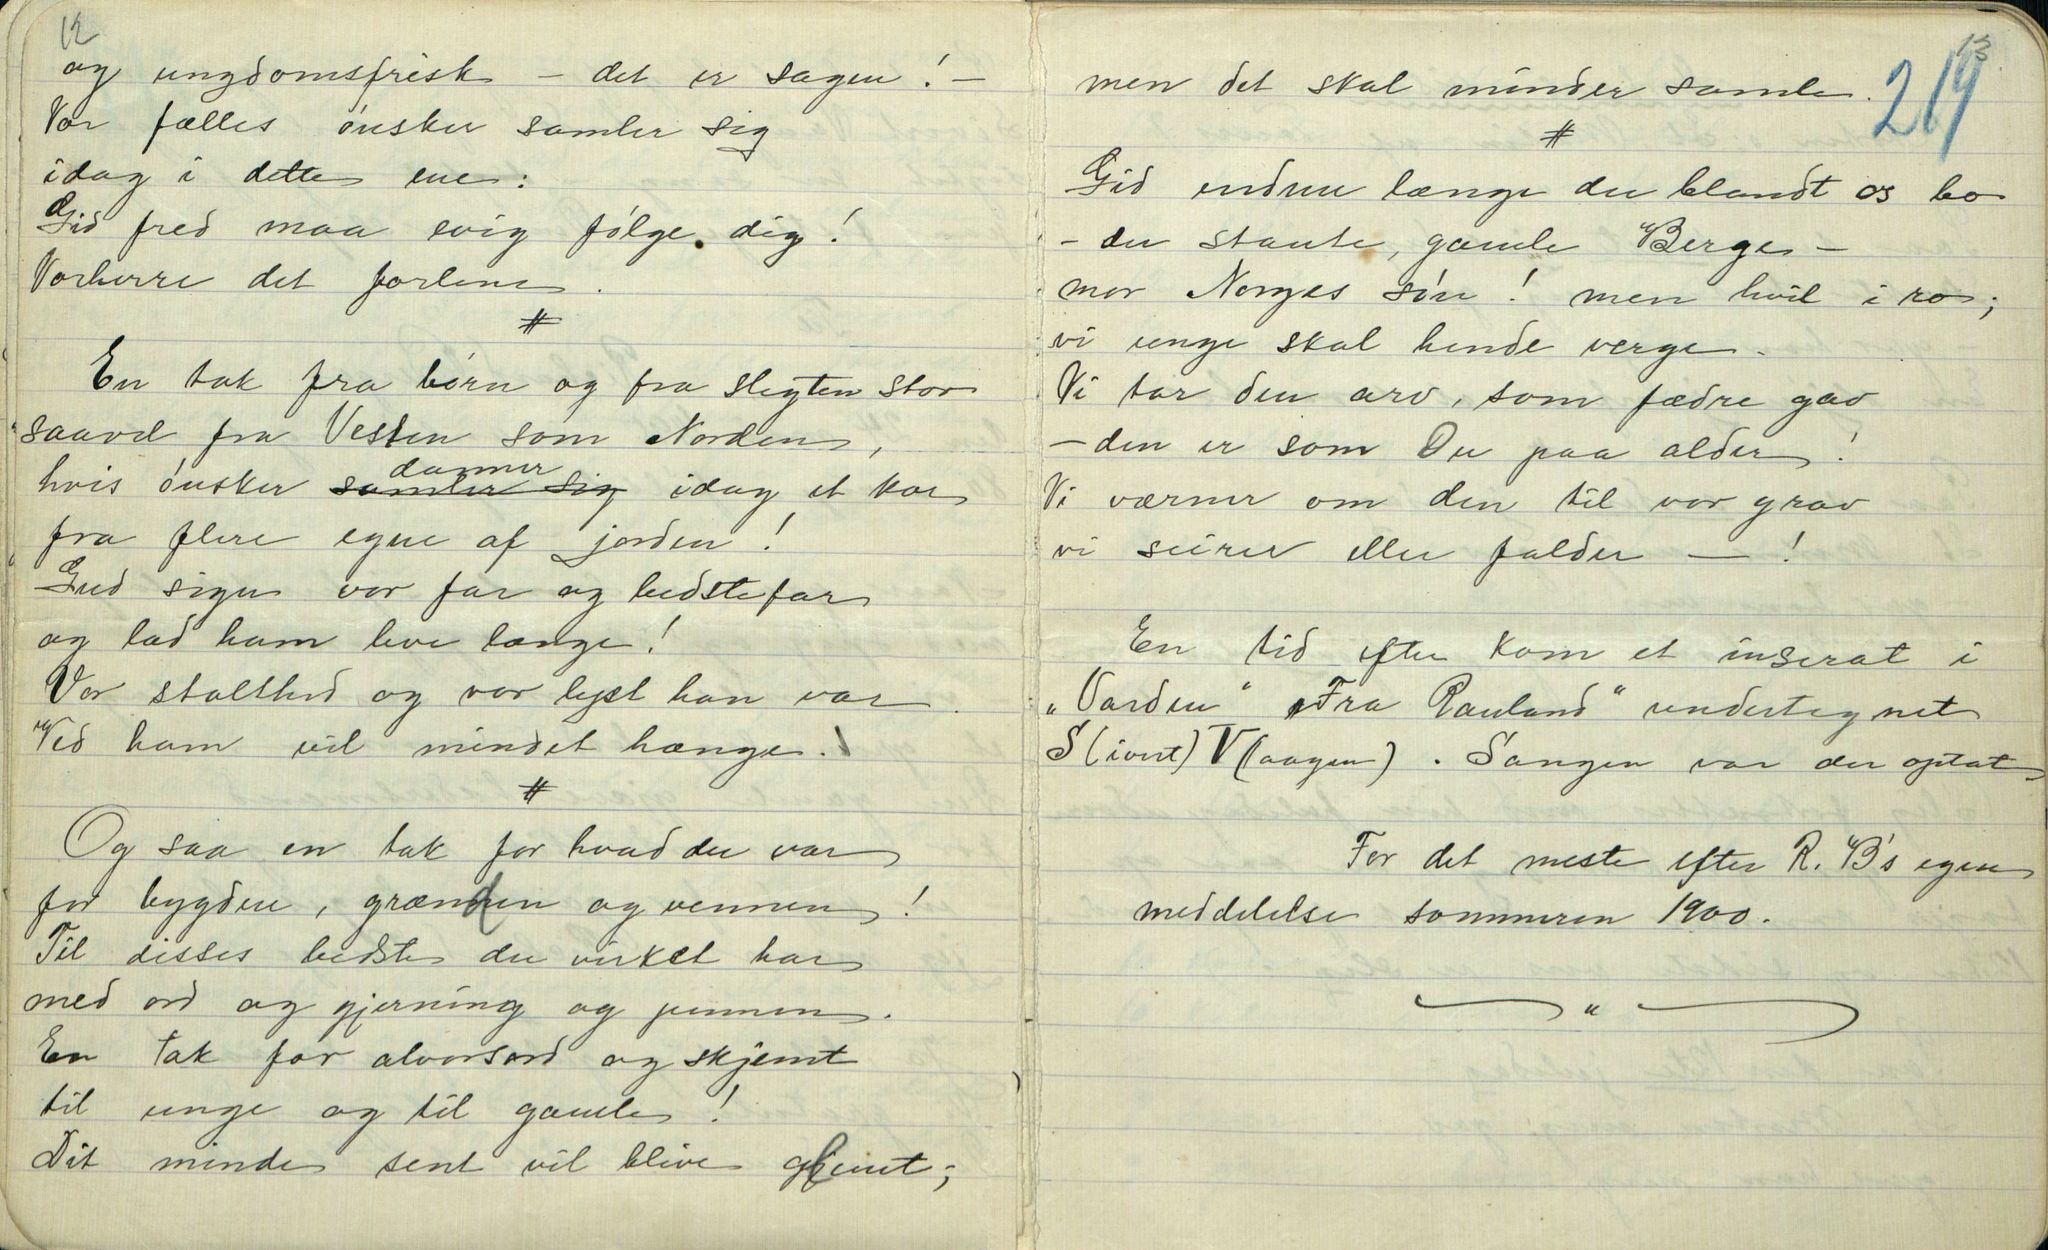 12
og ungdomsfrisk – det er sagen! –
Vor fælles ønsker samler sig
idag i dette ene:
Gid fred maa evig følge dig!
Vorherre det forlene.
#
En tak fra børn og fra slegten stor
saavel fra Vesten som Norden,
hvis ønsker ~~samler sig~~ danner idag et kor
fra flere egne af jorden!
Gud signe vor far og bedstefar
og lad ham leve længe!
Vor stolthed og vor lyst han var
Ved ham vil mindet hænge.
#
Og saa en tak for hvad du var
for bygden, grænden og vennen!
Til disses bedste du virket har
med ord og gjerning og pennen.
En tak for alvorsord og skjemt
til unge og til gamle!
Dit minde sent vil blive glemt;
13
219
men det skal minder samle.
#
Gid endnu længe du blandt os bo
– du staute, gamle Berge –
mor Norges søn! men hvil i ro;
vi unge skal hende verge.
Vi tar den arv, som fædre gav
– den er som Du paa alder!
Vi værner om den til vor grav
vi seirer eller falder – !
En tid efter kom et inserat i
„Varden“ „Fra Rauland“ undertegnet
S(ivert) V(aagen). Sangen var der optat.
For det meste efter R. B's egen
meddelelse sommeren 1900.
"